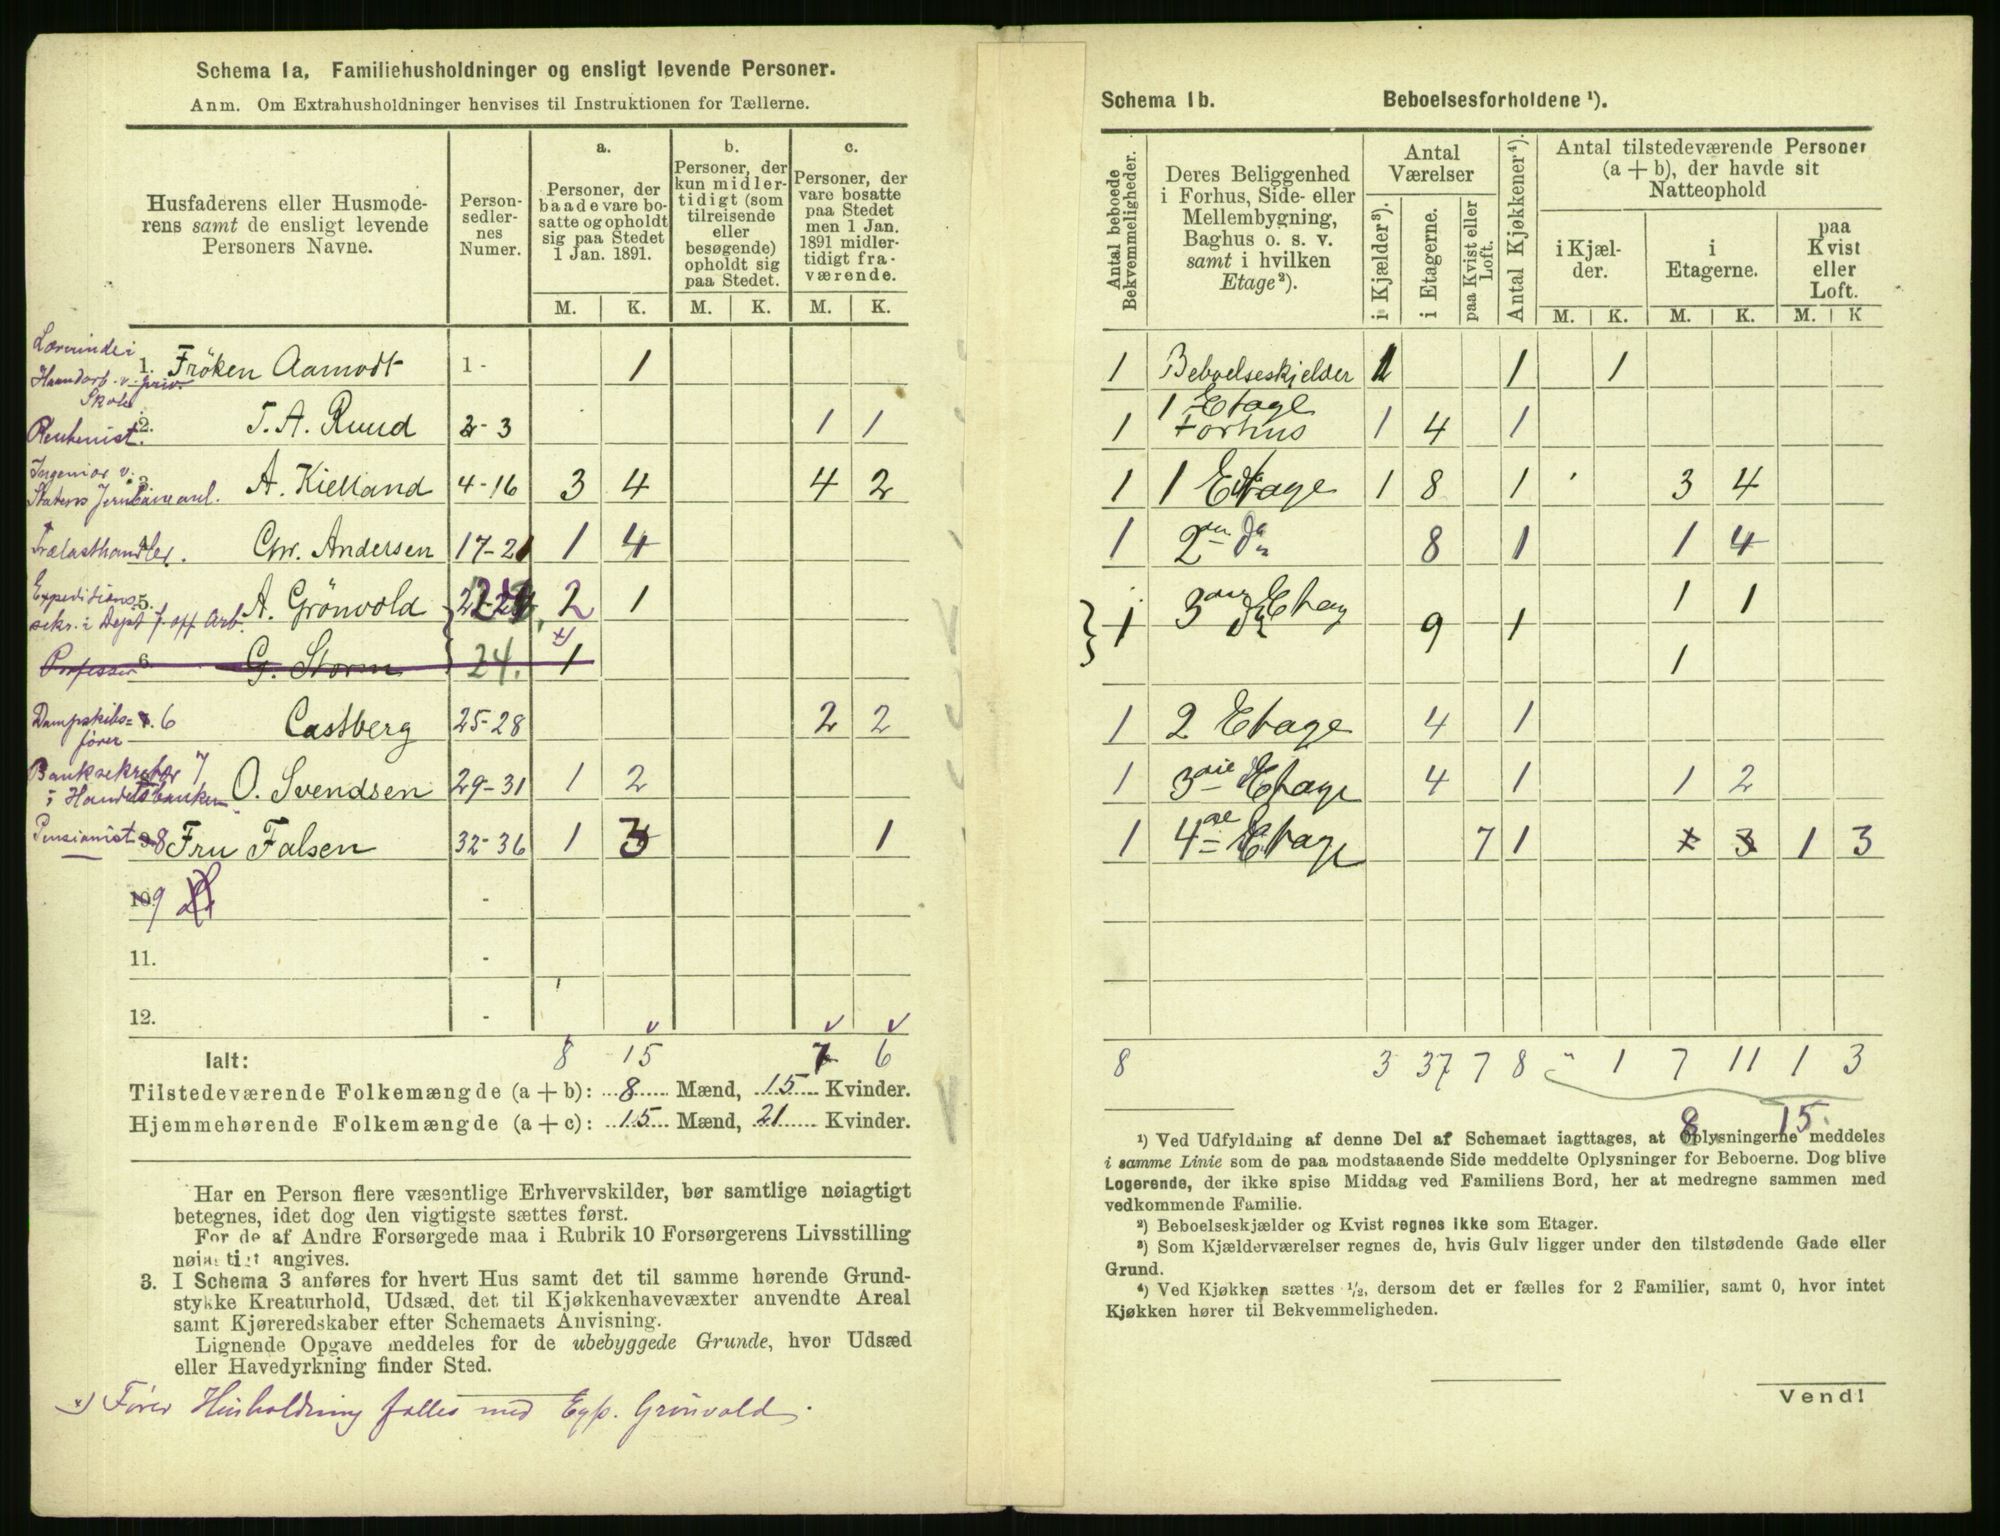 Schema 1a, Familiehusholdninger og ensligt levende Personer.
Anm. Om Extrahusholdninger henvises til Instruktionen for Tællerne.
Husfaderens eller Husmode-
rens samt de ensligt levende
Personers Navne.
Person-
sedler-
nes
Numer.
a.
Personer, der
baade vare bo-
satte og opholdt
sig paa Stedet
1 Jan. 1891.
b.
Personer, der
kun midler-
tidigt (som
tilreisende
eller
besøgende)
opholdt sig
paa Stedet.
c.
Personer, der
vare bosatte
paa Stedet
men 1 Jan.
1891 midler-
tidigt fra-
værende.
M. K. M. K. M. K.
Lærerinde i
Haandarb. v. priv.
Skole
1. Fröken Aamodt 1 - 1
Rentenist. 2. T. A. Ruud 2-3 1 1
Ingeniør v.
Statens Jernbaneanl. 3. A. Kielland 4-16 3 4 4 2
Trælasthandler. Chr. Andersen 17-21 1 4
Expeditions
sekr. i Dept f. off Arb. 5. A. Grönvold 2 1
Professor 6. G. Storm 24. x) 1
Dampskibs=
fører 6 Castberg 25-28 2 2
Banksekretær 7
i Handelsbanken O. Svendsen 29-31 1 2
Pensionist 8 Fru Falsen 32-36 1 3 1
10. 9 -
11. -
12. -
v v v
Ialt: 8 15 7 6
Tilstedeværende Folkemængde (a + b): 8 Mænd, 15 Kvinder.
Hjemmehørende Folkemængde (a + c): 15 Mænd, 21 Kvinder.
Har en Person flere væsentlige Erhvervskilder, bør samtlige nøiagtigt
betegnes, idet dog den vigtigste sættes først.
For de af Andre Forsørgede maa i Rubrik 10 Forsørgerens Livsstilling
nøiagtigt angives.
3. I Schema 3 anføres for hvert Hus samt det til samme hørende Grund-
stykke Kreaturhold, Udsæd, det til Kjøkkenhavevæxter anvendte Areal
samt Kjøreredskaber efter Schemaets Anvisning.
Lignende Opgave meddeles for de ubebyggede Grunde, hvor Udsæd
eller Havedyrkning finder Sted.
x) Fører Husholdning fælles med Exp. Grönvold.
Schema 1b. Beboelsesforholdene ¹).
Antal beboede
Bekvemmeligheder.
Deres Beliggenhed
i Forhus, Side- eller
Mellembygning,
Baghus o. s. v.
samt i hvilken
Etage²).
Antal
Værelser
i Kjælder³).
i Etagerne.
paa Kvist eller
Loft.
Antal Kjøkkener⁴).
Antal tilstedeværende Personer
(a + b), der havde sit
Natteophold
i Kjæl-
der.
i
Etagerne.
paa
Kvist
eller
Loft.
M. K. M. K. M. K
1 Beboelseskjelder 1 1 1
1 1 Etage
Forhus 1 4 1
1 1 Etage 1 8 1 3 4
1 2 8 1 1 4
1 3 Etag 9 1 1 1
1
1 2 Etage 4 1
1 3 Etage 4 1 1 2
1 4 Etage 7 1 3 1 3
8 3 37 7 8 - 1 7 11 1 3
8 15.
¹) Ved Udfyldning af denne Del af Schemaet iagttages, at Oplysningerne meddeles
i samme Linie som de paa modstaaende Side meddelte Oplysninger for Beboerne. Dog blive
Logerende, der ikke spise Middag ved Familiens Bord, her at medregne sammen med
vedkommende Familie.
²) Beboelseskjælder og Kvist regnes ikke som Etager.
³) Som Kjælderværelser regnes de, hvis Gulv ligger under den tilstødende Gade eller
Grund.
⁴) Ved Kjøkken sættes ½, dersom det er fælles for 2 Familier, samt 0, hvor intet
Kjøkken hører til Bekvemmeligheden.
Vend!